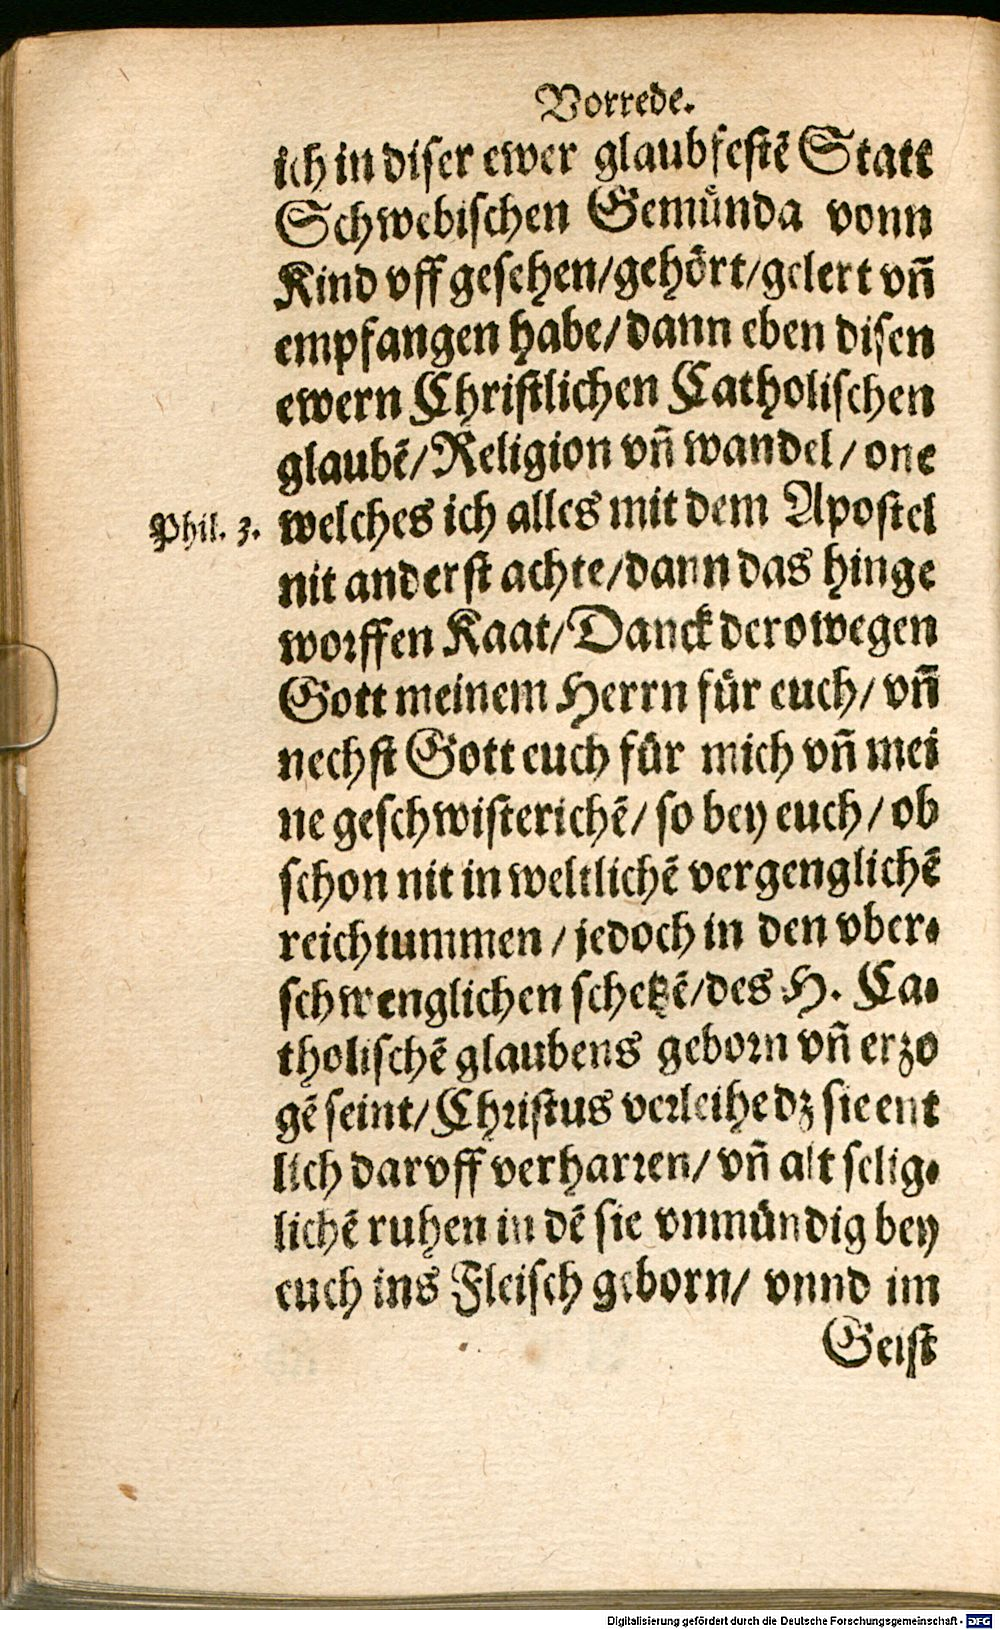 Vorrede.
ich in diser ewer glaubfestē Statt
Schwebischen Gemünda vonn
Kind vff gesehen/gehört/gelert vñ
empfangen habe/dann eben disen
ewern Christlichen Catholischen
glaubē/Religion vñ wandel/one
Phil. 3.
welches ich alles mit dem Apostel
nit anderst achte/dann das hinge
worffen Kaat/Danck derowegen
Gott meinem Herrn für euch/vñ
nechst Gott euch für mich vñ mei
ne geschwisterichē/so bey euch/ob
schon nit in weltlichē vergenglichē
reichtummen/jedoch in den vber-
schwenglichen schetzē/des H. Ca-
tholischē glaubens geborn vñ erzo
gē seint/Christus verleihe dz sie ent
lich darvff verharren/vñ alt selig-
lichē ruhen in dē sie vnmündig bey
euch ins Fleisch geborn/vnnd im
Geist
Digitalisierung gefördert durch die Deutsche Forschungsgemeinschaft - DFG